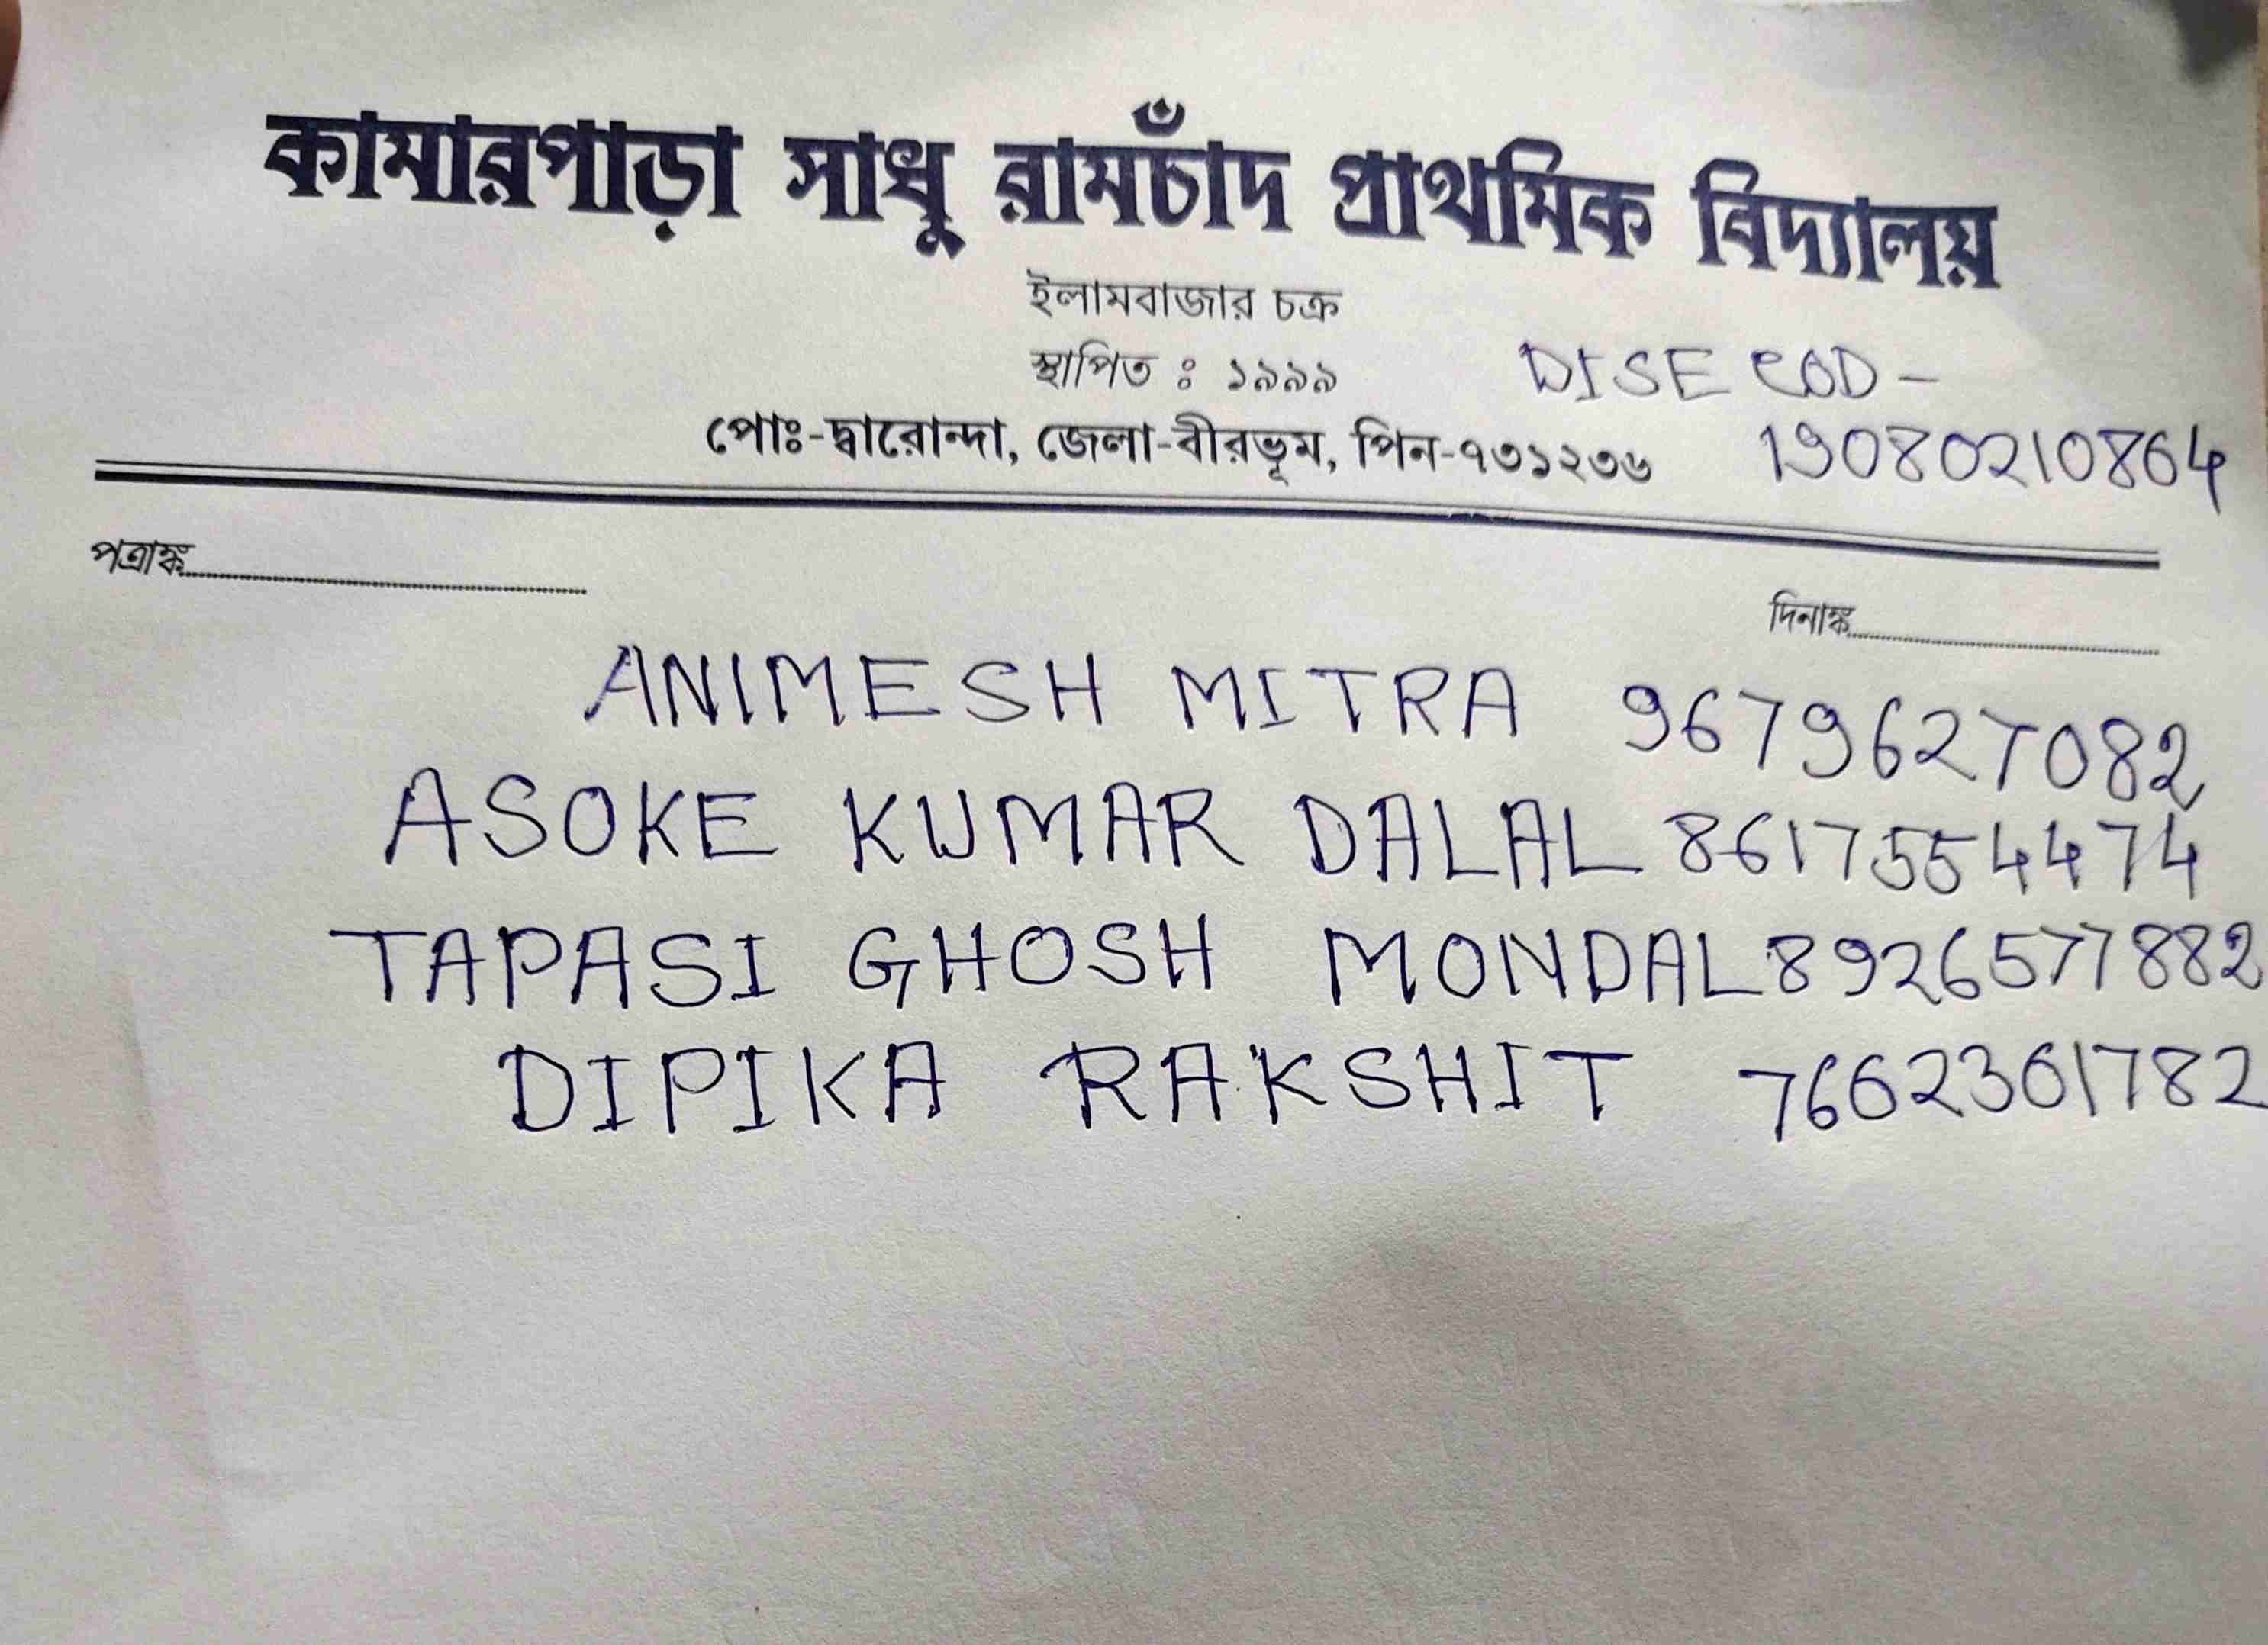 কামারপাড়া সাধু রামচাঁদ প্রাথমিক বিদ্যালয়
ইলামবাজার চক্র
স্থাপিত : ১৯৯৯ DISE COD -
পোঃ-দ্বারোন্দা, জেলা-বীরভূম, পিন-৭৩১২৩৬ 19080210864
পত্রাঙ্ক
দিনাঙ্ক
ANIMESH MITRA 9679627082
ASOKE KUMAR DALAL 8617554474
TAPASI GHOSH MONDAL 8926577882
DIPIKA RAKSHIT 7662361782